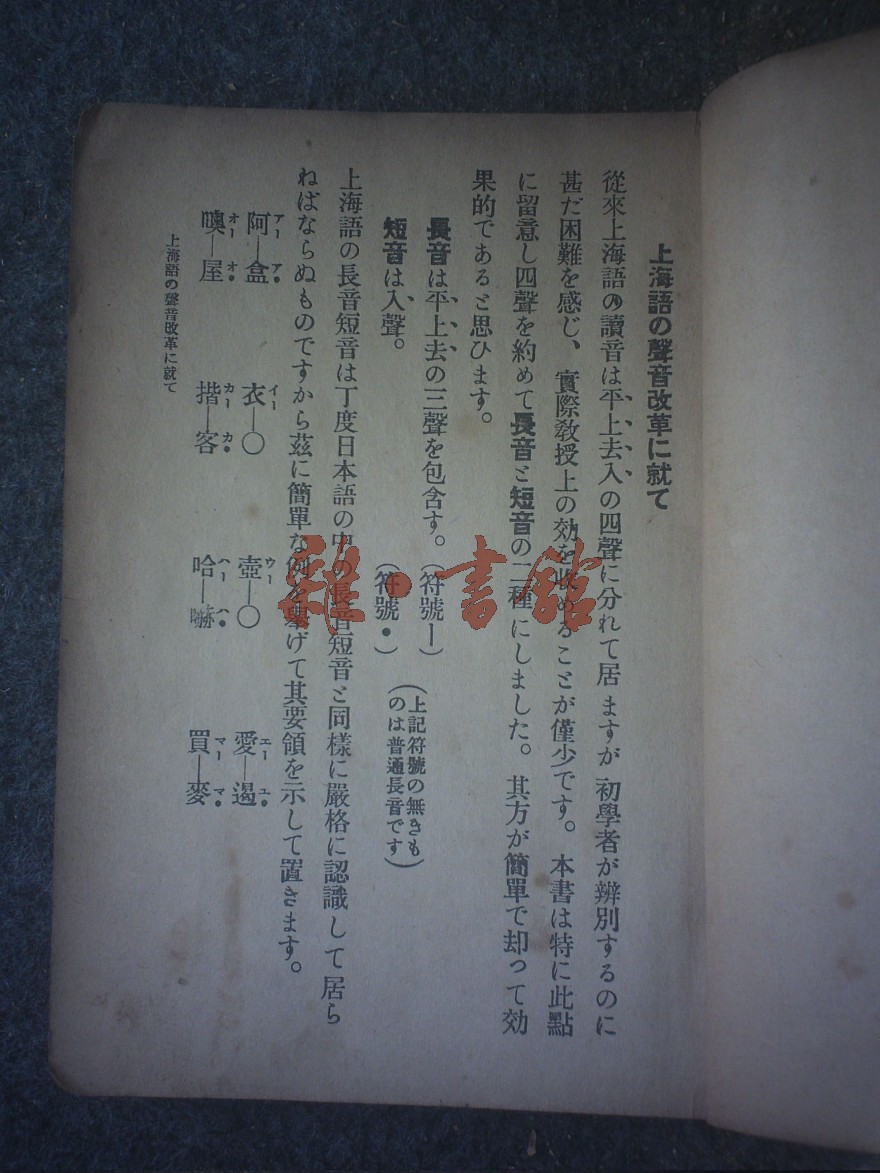 上海語の聲音改革に就て
從來上海語の讀音は平上去入の四聲に分れて居ますが初學者が辨別するのに
甚だ困難を感じ、實際敎授上の効を收めることが僅少です。本書は特に此點
に留意し四聲を約めて長音と短音の二種にしました。其方が簡單で却って効
果的であると思ひます。
長音は平上去の三聲を包含す。(符號ー)
短音は入聲。(符號・)
(上記符號の無きも
のは普通長音です)
上海語の長音短音は丁度日本語の中の長音短音と同樣に嚴格に認識して居ら
ねばならぬものですから茲に簡單な例を擧げて其要領を示して置きます。
阿アー—盒ア・ 衣イー—〇 壺ウー—〇 愛エー—遏エ・
噢オー—屋オ・ 揩カー—客カ・ 哈ハー—ハ・ 買マー—麥マ・
上海語の聲音改革に就て
雜・書館